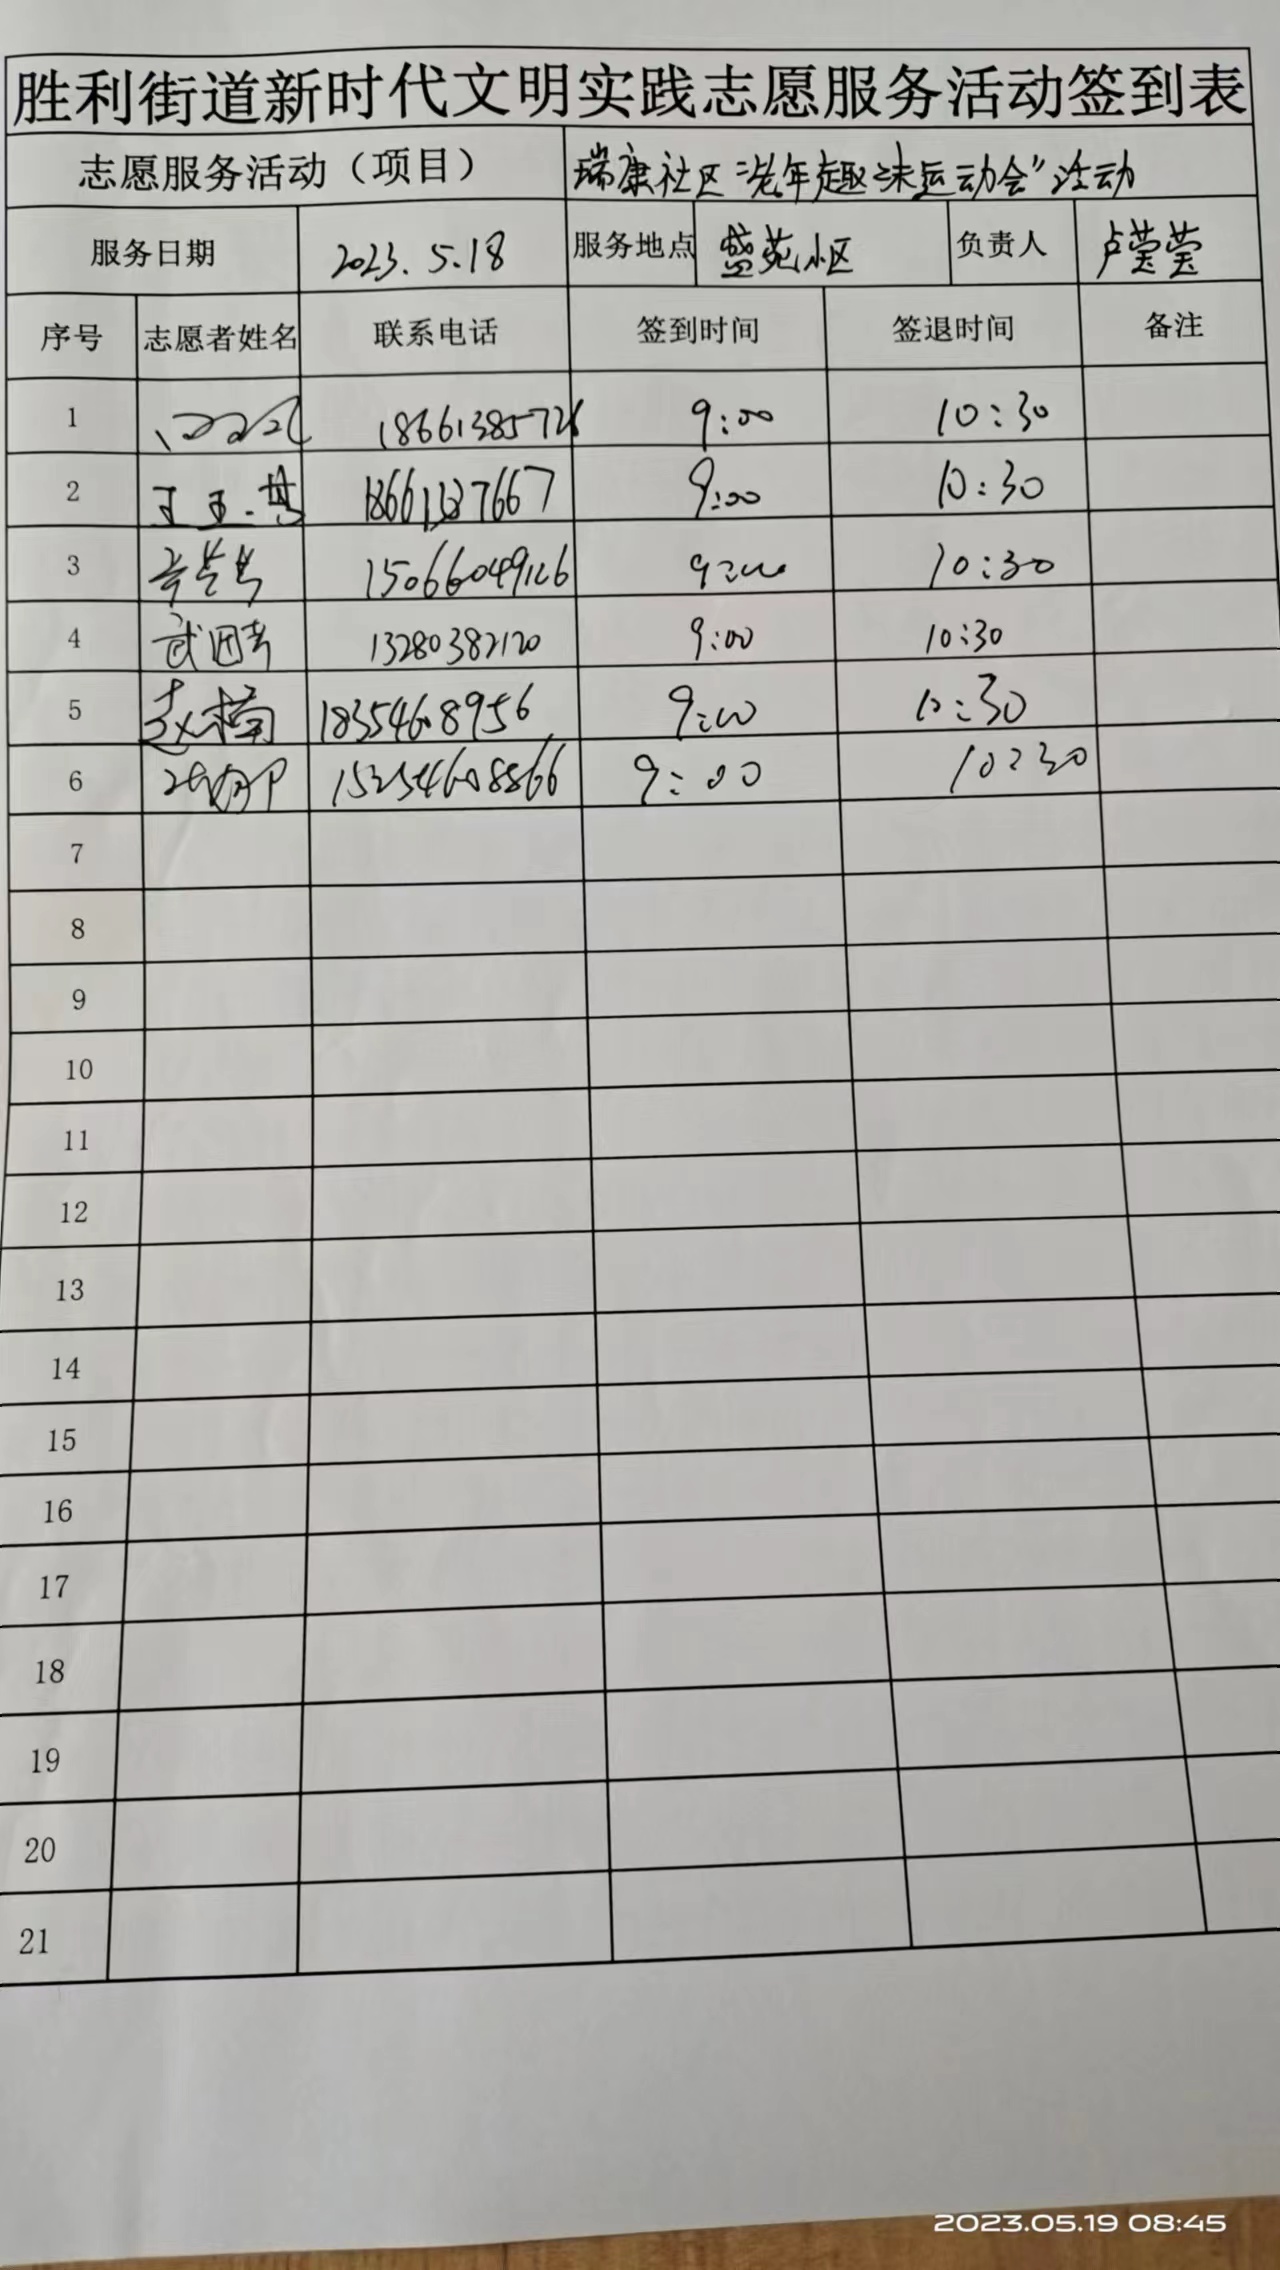 胜利街道新时代文明实践志愿服务活动签到表
志愿服务活动（项目） 瑞康社区“老年趣味运动会”活动
服务日期 2023.5.18 服务地点 盛苑小区 负责人 卢莹莹
序号 志愿者姓名 联系电话 签到时间 签退时间 备注
1 18661385726 9:00 10:30
2 9:00 10:30
3 9:00 10:30
4 13280382120 9:00 10:30
5 赵楠 18354608956 9:00 10:30
6 15254608866 9:00 10:30
7
8
9
10
11
12
13
14
15
16
17
18
19
20
21
2023.05.19 08:45